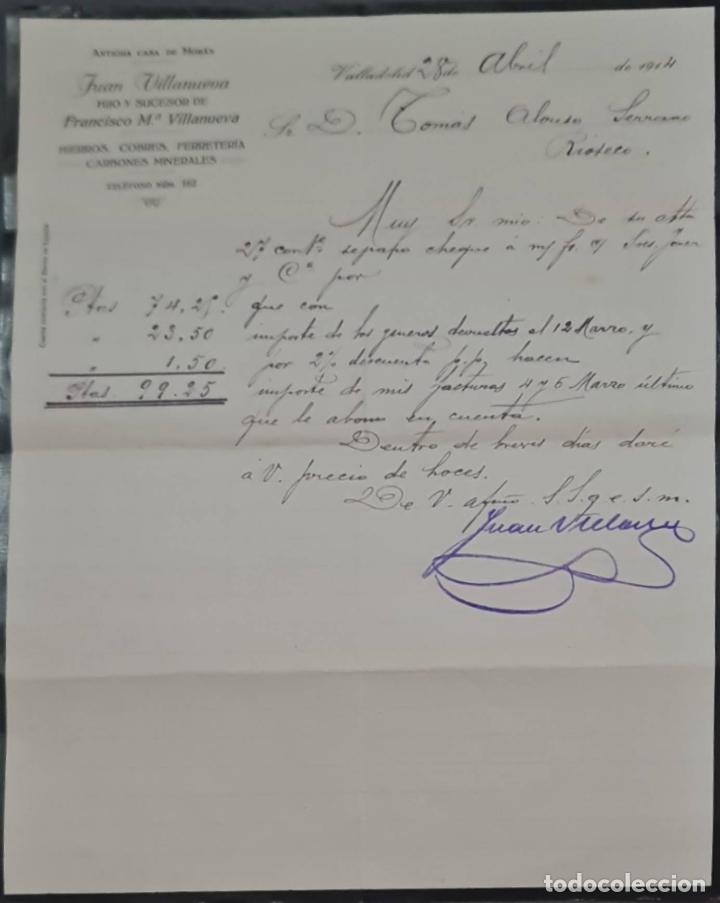 ANTIGUA CASA DE MORÁN
Juan Villanueva
HIJO Y SUCESOR DE
Francisco M.ª Villanueva
HIERROS, COBRES, FERRETERÍA
CARBONES MINERALES
TELÉFONO NÚM. 162
Valladolid 28 de Abril de 1914
Sr D. Tomás Alonso Serrano
Rioseco.
Muy Sr. mio: De su atta
27 cont.º cheque á m/ fr. c/ Sres. Jover
y Cª por
Ptas 74,25. que con
" 23,50 importe de los generos devueltos el 12 Marzo, y
" 1,50. por 2% descuento p.p. hacen
Ptas. 99.25 importe de mis facturas 4 y 5 Marzo último
que le abono en cuenta.
Dentro de breves dias daré
á V. precio de hoces.
De V. afmo. S.S. q. e. s. m.
Juan Villanueva
todocoleccion.net